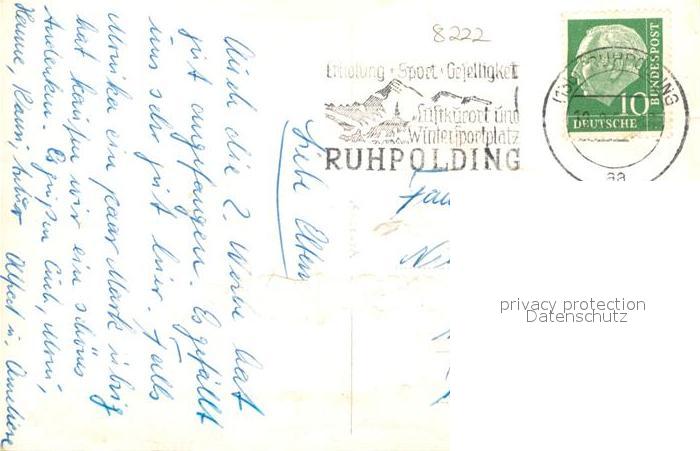 8222
Erholung · Sport · Geselligkeit
Luftkurort und
Wintersportplatz
RUHPOLDING
RUHPOLDING
aa
10
DEUTSCHE
BUNDESPOST
Fam
privacy protection
Datenschutz
Liebe Eltern
Auch die 2. Woche hat
gut angefangen. Es gefällt
uns sehr gut hier. Falls
Monika ein paar Mark übrig
hat kaufen wir ein schönes
Andenken. Es grüßen Euch,
Alfred u. Anneliese